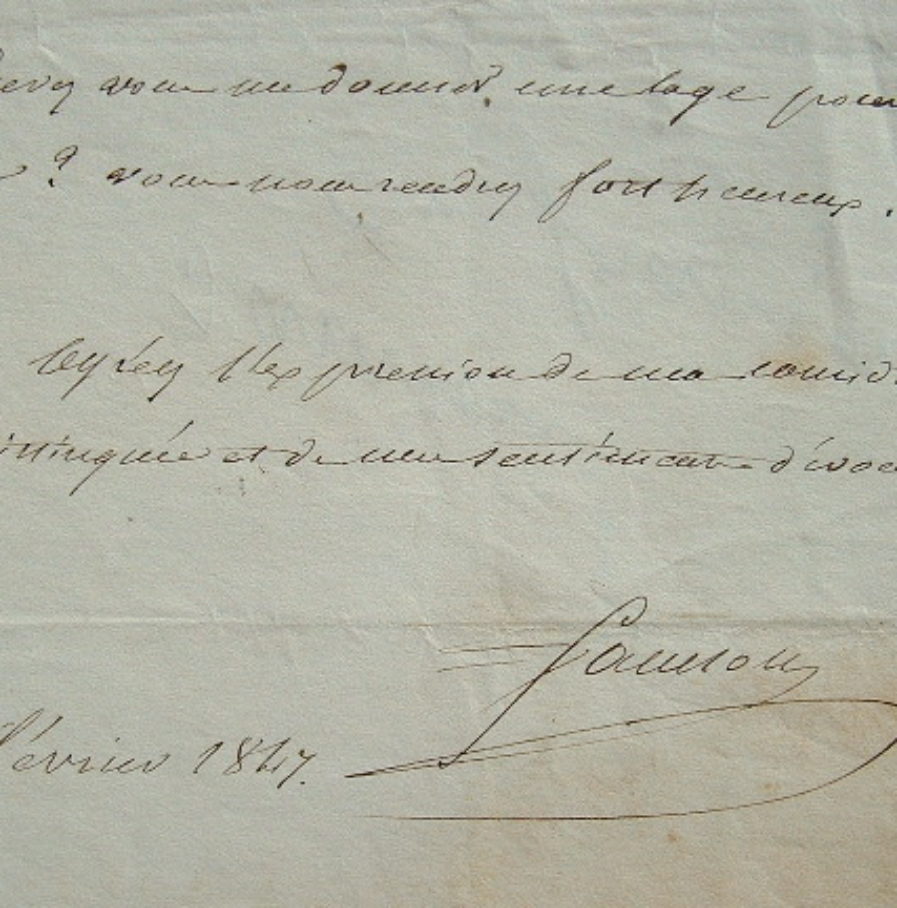 vous me donner une loge pour
? vous nous rendrez fort heureux.
Agréez l'expression de ma considé
distinguée et de mes sentiments dévoué
Samson
février 1847.